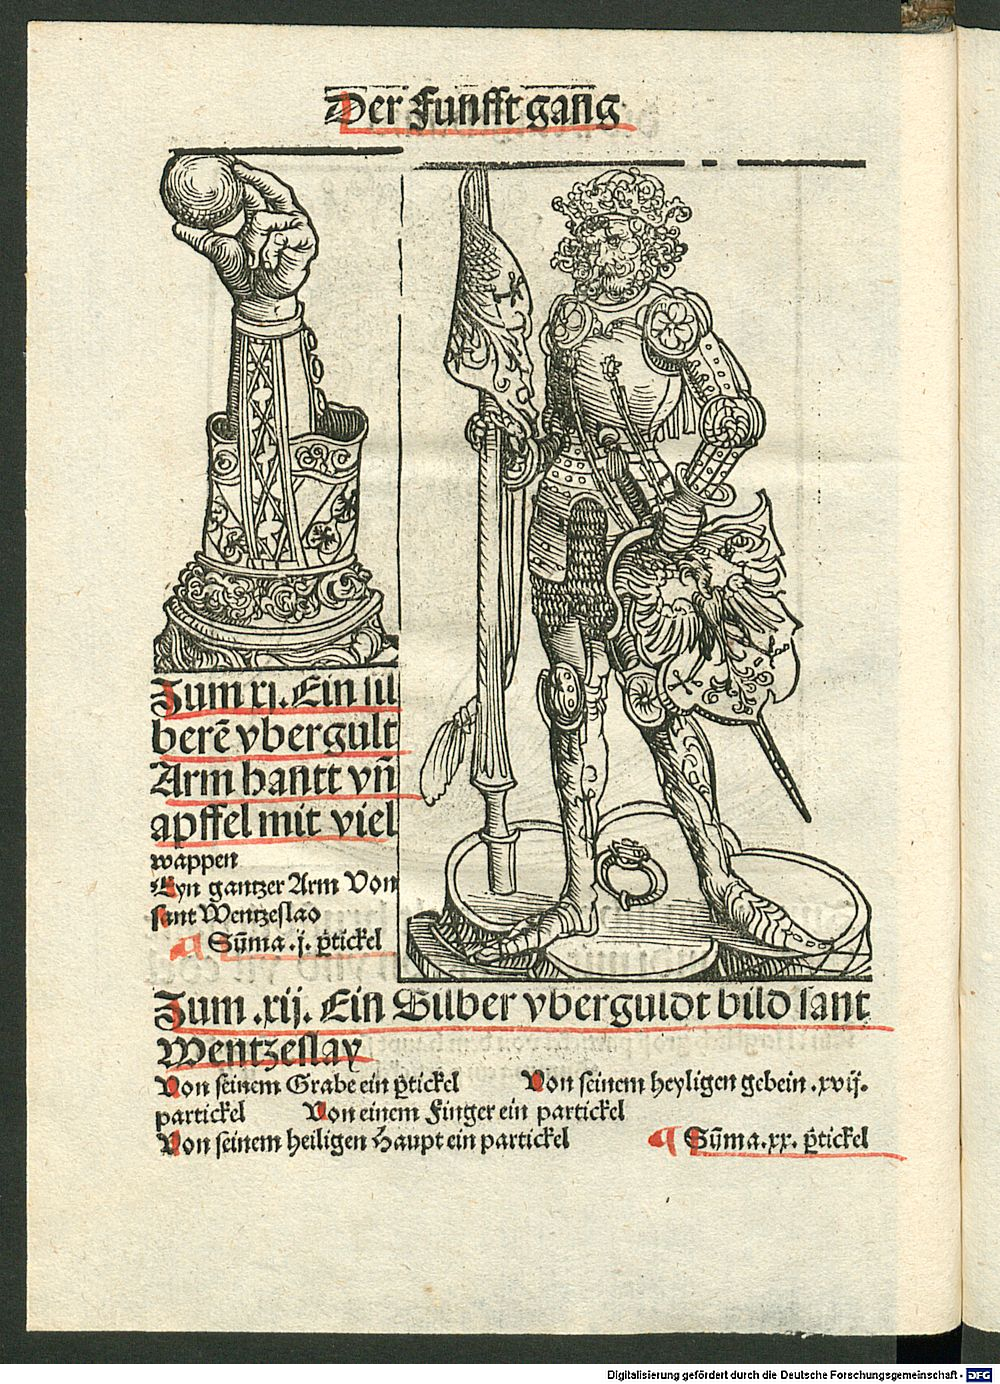 Der Funfft gang
Zum xj. Ein sil
berē vbergult
Arm hantt vñ
apffel mit viel
wappen
Eyn gantzer Arm Von
sant Wentzeslao
¶ Sūma .j. p̄tickel
Zum .xij. Ein Silber vberguldt bild sant
Wentzeslay
Von seinem Grabe ein p̄tickel Von seinem heyligen gebein .xvij.
partickel Von einem Finger ein partickel
Von seinem heiligen Haupt ein partickel ¶ Sūma .xx. p̄tickel
Digitalisierung gefördert durch die Deutsche Forschungsgemeinschaft - DFG